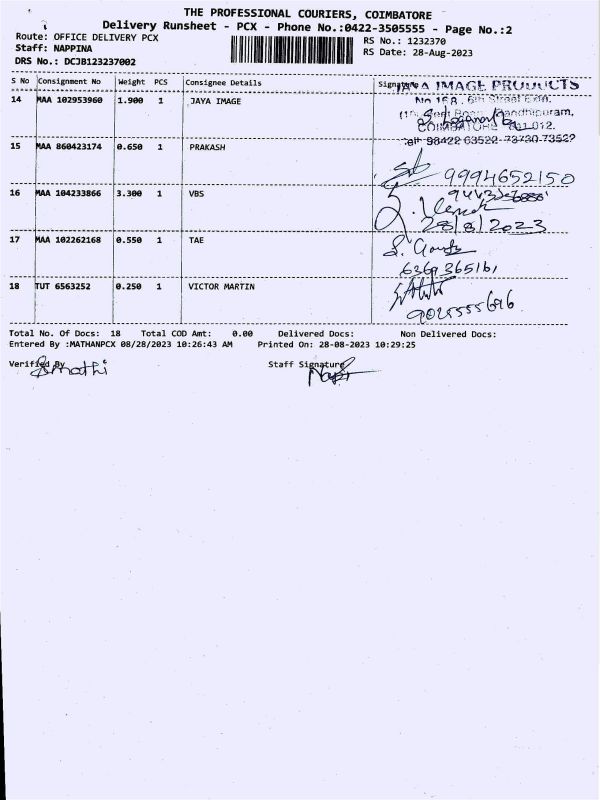 THE PROFESSIONAL COURIERS, COIMBATORE
Delivery Runsheet - PCX - Phone No.:0422-3505555 - Page No.:2
Route: OFFICE DELIVERY PCX
RS No.: 1232370
Staff: NAPPINA
RS Date: 28-Aug-2023
DRS No.: DCJB123237002
S No Consignment No Weight PCS Consignee Details Signature
IMAGE PRODUCTS
14 MAA 102953960 1.900 1 JAYA IMAGE
No 168, 6th Street Extn.
Gandhipuram,
COIMBATORE 641 012.
15 MAA 860423174 0.650 1 PRAKASH
98422 63522 73730 73522
9994652150
16 MAA 104233866 3.300 1 VBS
28/8/2023
17 MAA 102262168 0.550 1 TAE
6369365161
18 TUT 6563252 0.250 1 VICTOR MARTIN
9025555696
Total No. Of Docs: 18 Total COD Amt: 0.00 Delivered Docs: Non Delivered Docs:
Entered By :MATHANPCX 08/28/2023 10:26:43 AM Printed On: 28-08-2023 10:29:25
Verified By Staff Signature